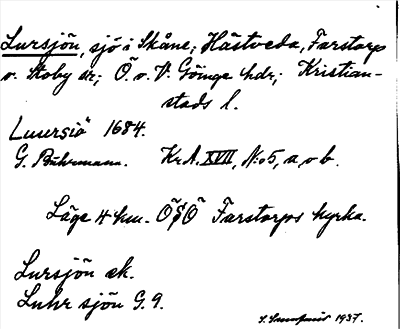 Lursjön, sjö i Skåne; Hästveda, Farstorp
o. Stoby sr; Ö. o. V. Göinge hdr; Kristian-
stads l.
Luursiö 1684.
G. Buhrmann. Kr.A. XVII, N:o 5, a o b.
Läge 4 km. ÖSÖ Farstorps kyrka.
Lursjön ek.
Luhr sjön G. 9.
1937.